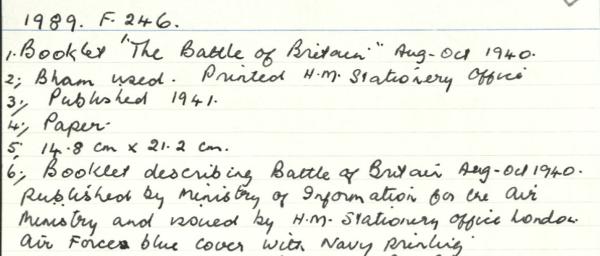 1989. F. 246.
1. Booklet "The Battle of Britain" Aug-Oct 1940.
2; Bham used. Printed H.M. Stationery Office
3; Published 1941.
4; Paper.
5 14.8 cm x 21.2 cm.
6; Booklet describing Battle of Britain Aug-Oct 1940.
Published by Ministry of Information for the Air
Ministry and issued by H.M. Stationery Office London
Air Force blue cover with Navy printing